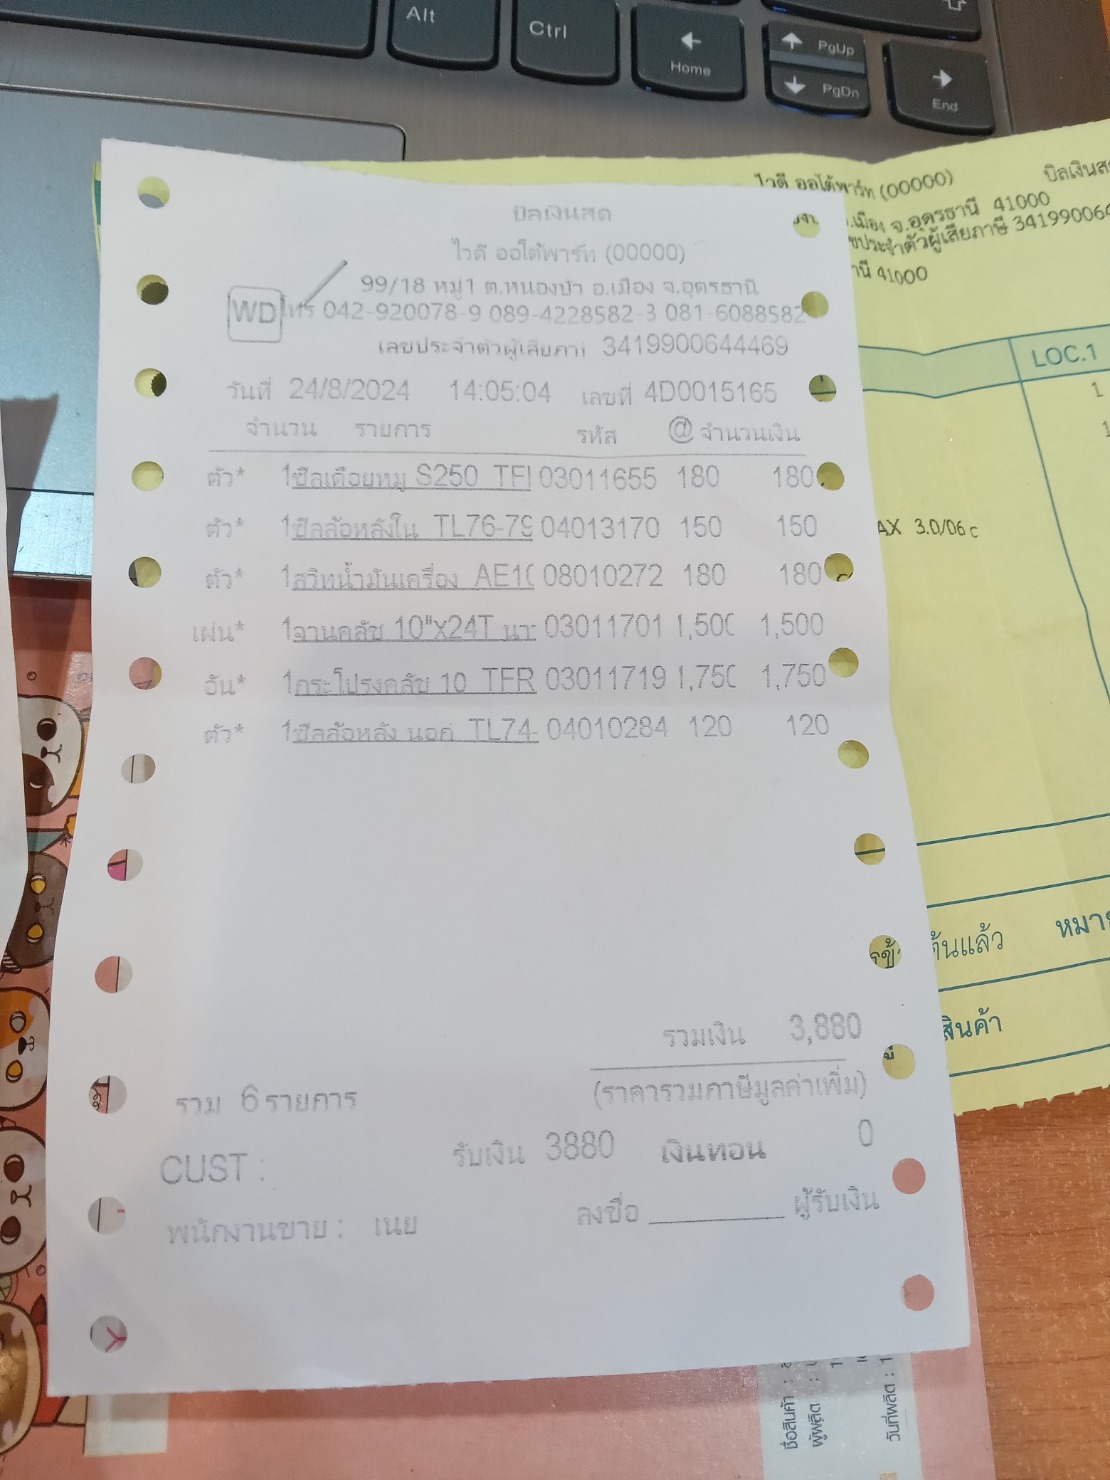 Alt
Ctrl
Home
PgUp
PgDn
End
บิลเงินสด
ไวดี ออโต้พาร์ท (00000)
99/18 หมู่1 ต.หนองบัว อ.เมือง จ.อุดรธานี
WD โทร 042-920078-9 089-4228582-3 081-6088582
เลขประจำตัวผู้เสียภาษี 3419900644469
วันที่ 24/8/2024 14:05:04 เลขที่ 4D0015165
จำนวน รายการ รหัส @ จำนวนเงิน
ตัว* 1ซีลเดือยหมู S250 TF 03011655 180 180
ตัว* 1ซีลล้อหลังใน TL76-79 04013170 150 150
ตัว* 1สวิทน้ำมันเครื่อง AE10 08010272 180 180
แผ่น* 1จานคลัช 10"x24T 03011701 1,500 1,500
อัน* 1กระโปรงคลัช 10 TFR 03011719 1,750 1,750
ตัว* 1ซีลล้อหลัง นอก TL74- 04010284 120 120
รวมเงิน 3,880
(ราคารวมภาษีมูลค่าเพิ่ม)
รวม 6รายการ
รับเงิน 3880 เงินทอน 0
CUST :
ลงชื่อ ผู้รับเงิน
พนักงานขาย : เนย
ไวดี ออโต้พาร์ท (00000) บิลเงินส
.เมือง จ.อุดรธานี 41000
ขประจำตัวผู้เสียภาษี 34199006
านี 41000
LOC.1
1
1
AX 3.0/06 c
ต้นแล้ว
หมา
สินค้า
ชื่อสินค้า :
ผู้ผลิต :
วันที่ผลิต : 1